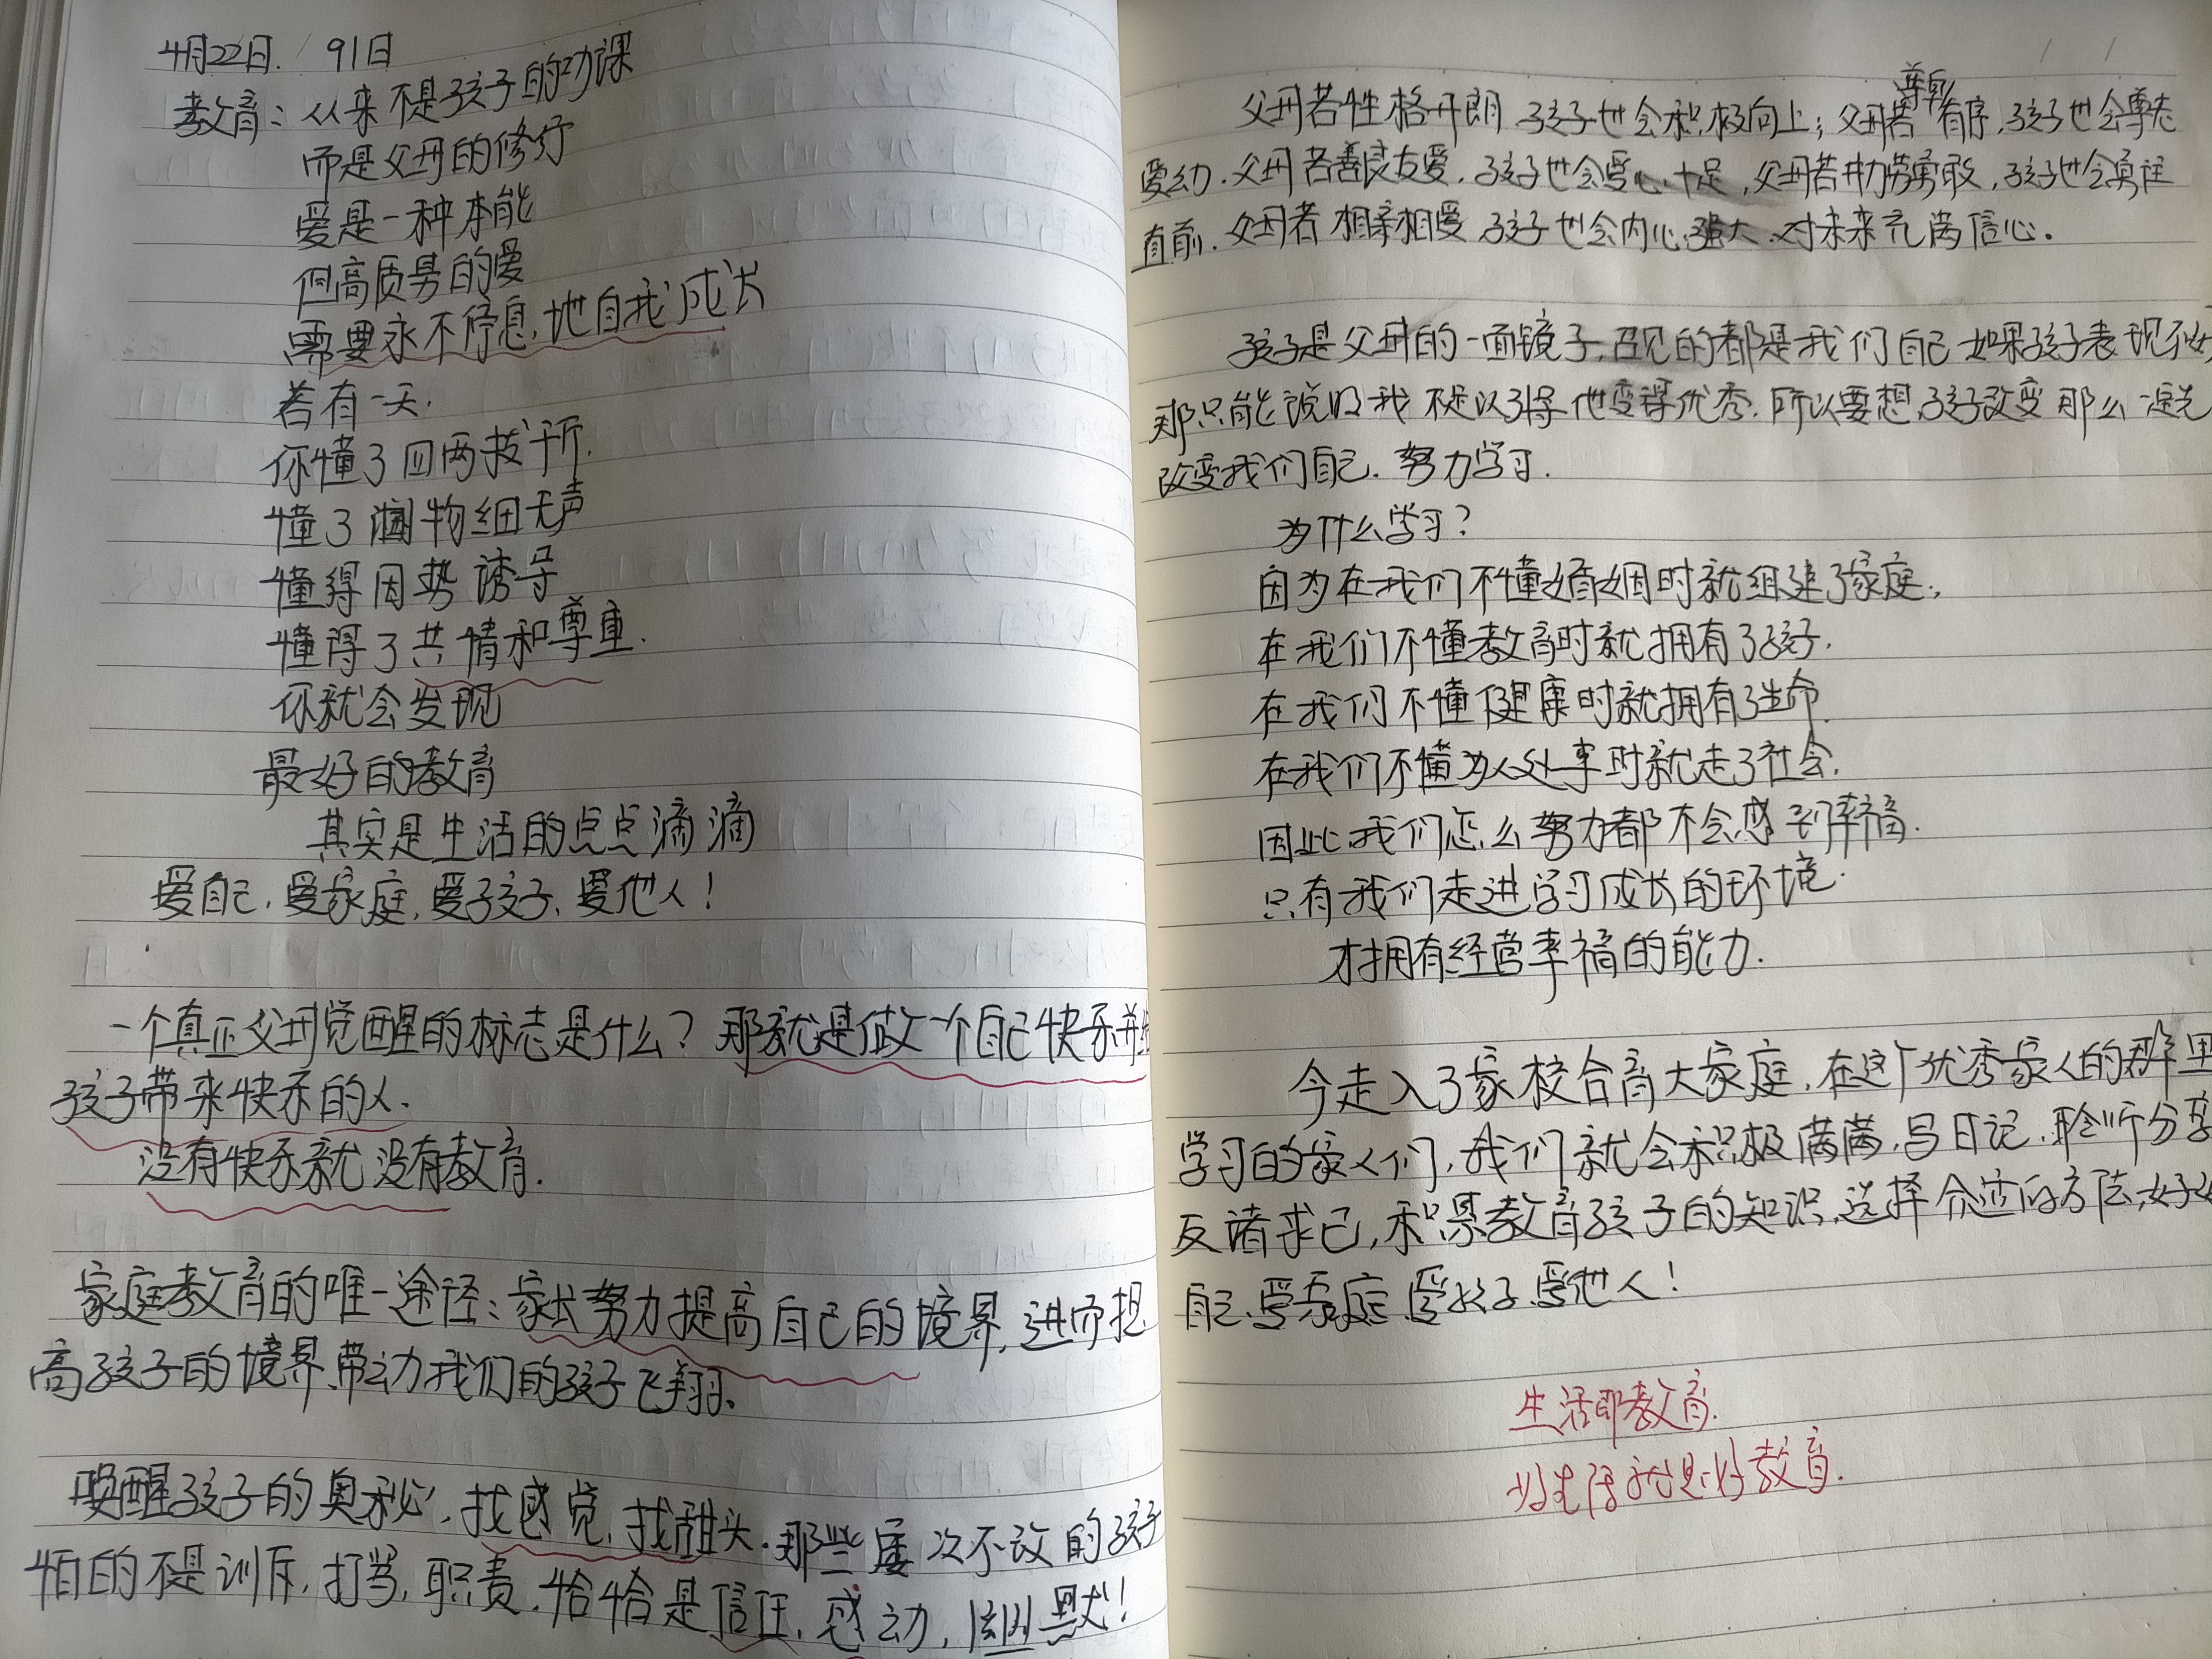 4月22日. 91日
教育：从来不是孩子的功课
而是父母的修行
爱是一种本能
但高质量的爱
需要永不停息，地自我成长
若有一天.
你懂了四两拨千斤.
懂了润物细无声
懂得因势诱导
懂得了共情和尊重.
你就会发现
最好的教育
其实是生活的点点滴滴
爱自己，爱家庭，爱孩子、爱他人！
一个真正父母觉醒的标志是什么？那就是做一个自己快乐并给
孩子带来快乐的人.
没有快乐就没有教育.
家庭教育的唯一途径：家长努力提高自己的境界，进而提
高孩子的境界、带动我们的孩子飞翔.
唤醒孩子的奥秘，找感觉，找甜头.那些屡次不改的孩子
怕的不是训斥，打当，职责，恰恰是信任，感动，幽默！
父母若性格开朗，孩子也会积极向上；父母若尊卑有序，孩子也会尊老
爱幼.父母若善良友爱，孩子也会爱心十足，父母若勤劳勇敢，孩子也会勇往
直前.父母若相亲相爱 孩子也会内心强大、对未来充满信心。
孩子是父母的一面镜子，召见的都是我们自己 如果孩子表现不好
那只能说明我不足以引得他变得优秀.所以要想孩子改变那么一定先
改变我们自己.努力学习.
为什么学习？
因为在我们不懂婚姻时就组建了家庭，
在我们不懂教育时就拥有了孩子.
在我们不懂健康时就拥有了生命.
在我们不懂为人处事时就走了社会.
因此我们怎么努力都不会感到幸福.
只有我们走进学习成长的环境.
才拥有经营幸福的能力.
今走入了家校合育大家庭，在这个优秀家人的那里
学习的家人们，我们就会积极满满，写日记，聆听分享
反诸求己，积累教育孩子的知识，选择合适的方法，好好
自己、爱家庭、爱孩子、爱他人！
生活即教育.
好生活就是好教育.